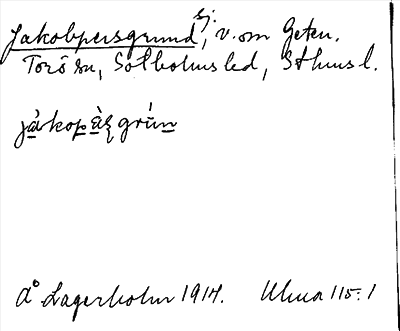 Jakobpersgrund sj., v. om Geten.
Torö sn, Sotholms hd, Sthms l.
jakopäsgrun
Lagerholm 1917. Ulma 115:1